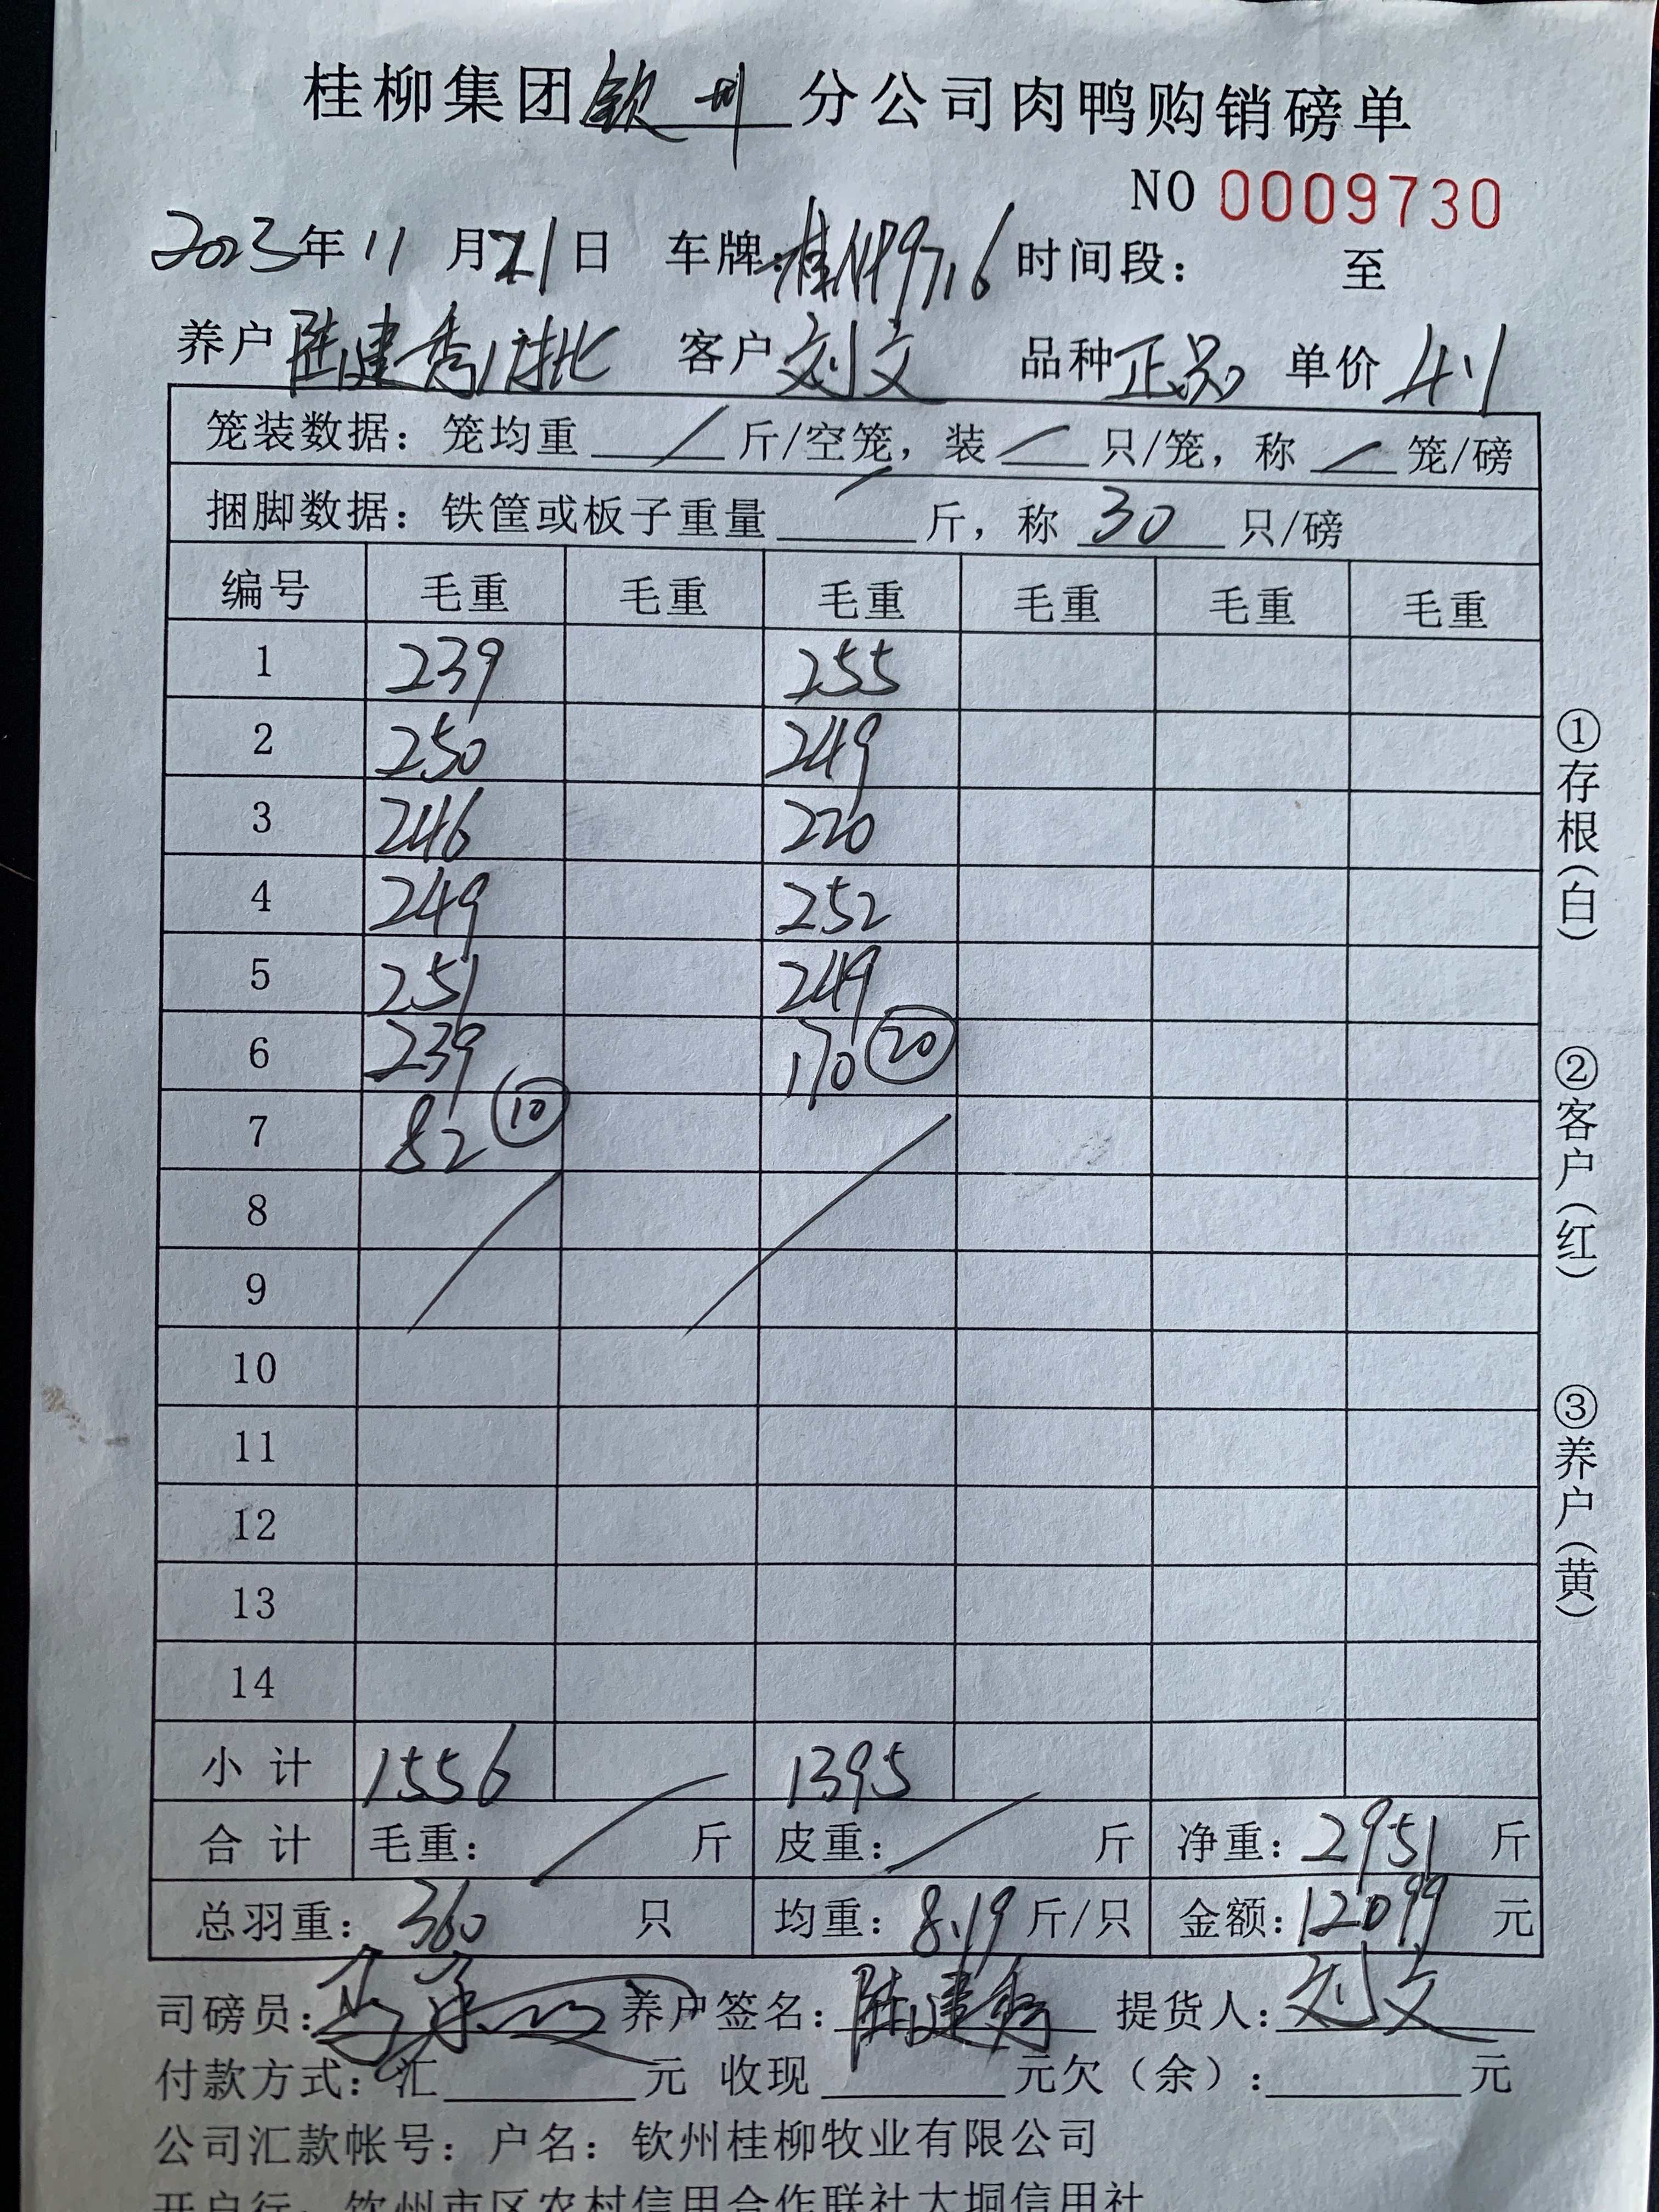 桂柳集团钦州分公司肉鸭购销磅单
NO 0009730
2023年11月21日 车牌:桂N 时间段: 至
养户陆建秀 客户刘文 品种正品 单价4.1
笼装数据:笼均重/斤/空笼,装/只/笼,称/笼/磅
捆脚数据:铁筐或板子重量/斤,称30只/磅
编号 毛重 毛重 毛重 毛重 毛重 毛重
1 239 255
2 250 249
3 246 220
4 249 252
5 251 249
6 239 170 ⑳
7 82 ⑩
8
9
10
11
12
13
14
小计 1556 1395
合计 毛重:/斤 皮重:/斤 净重:2951斤
总羽重:360只 均重:8.19斤/只 金额:12099元
司磅员: 养户签名:陆建秀 提货人:刘文
付款方式:汇 元 收现 元欠(余): 元
公司汇款帐号:户名:钦州桂柳牧业有限公司
开户行:钦州市区农村信用合作联社大垌信用社
①存根(白) ②客户(红) ③养户(黄)